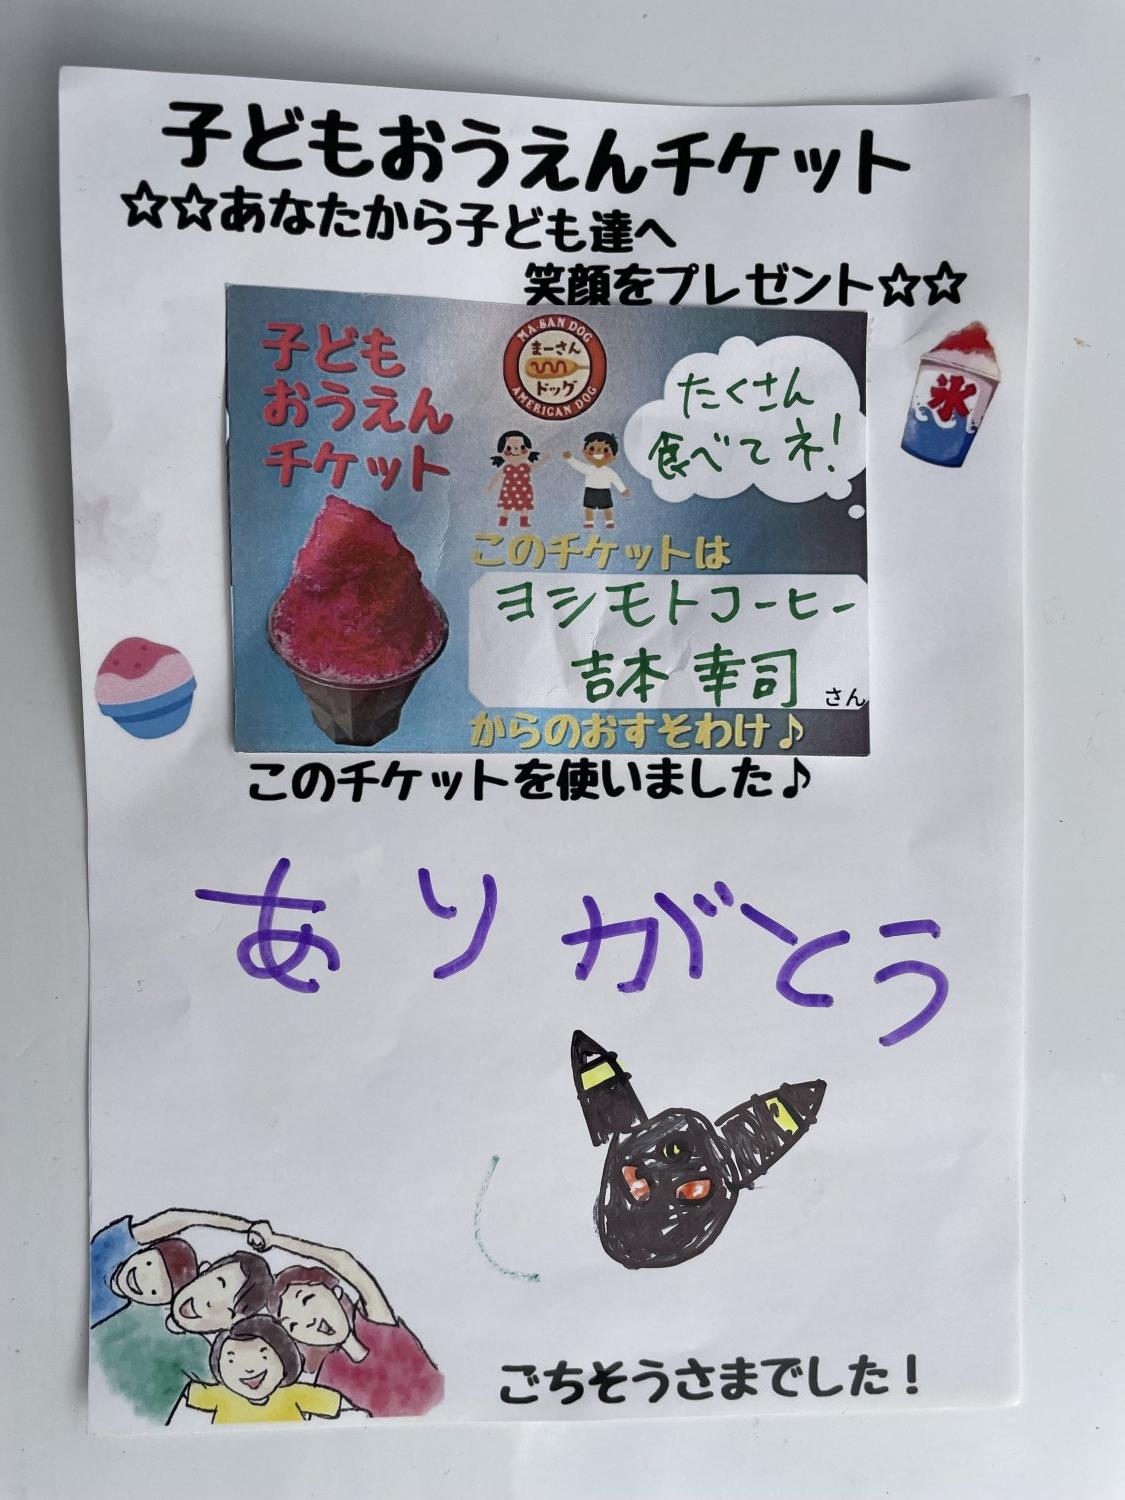 子どもおうえんチケット
☆☆あなたから子ども達へ
笑顔をプレゼント☆☆
子ども
おうえん
チケット
MA-SAN DOG
まーさん
ドッグ
AMERICAN DOG
たくさん
食べてネ!
氷
このチケットは
ヨシモトコーヒー
吉本 幸司
さん
からのおすそわけ♪
このチケットを使いました♪
ありがとう
ごちそうさまでした!